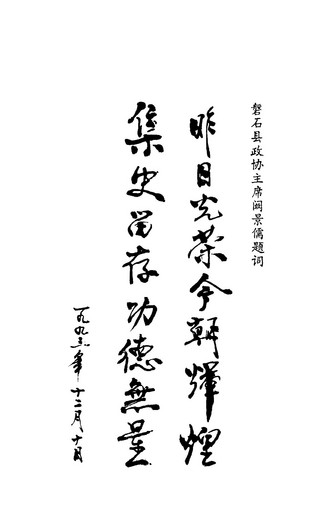 磐石县政协主席阚景儒题词
昨日光荣今朝辉煌
集史留存功德無量
一九九三年十二月十日